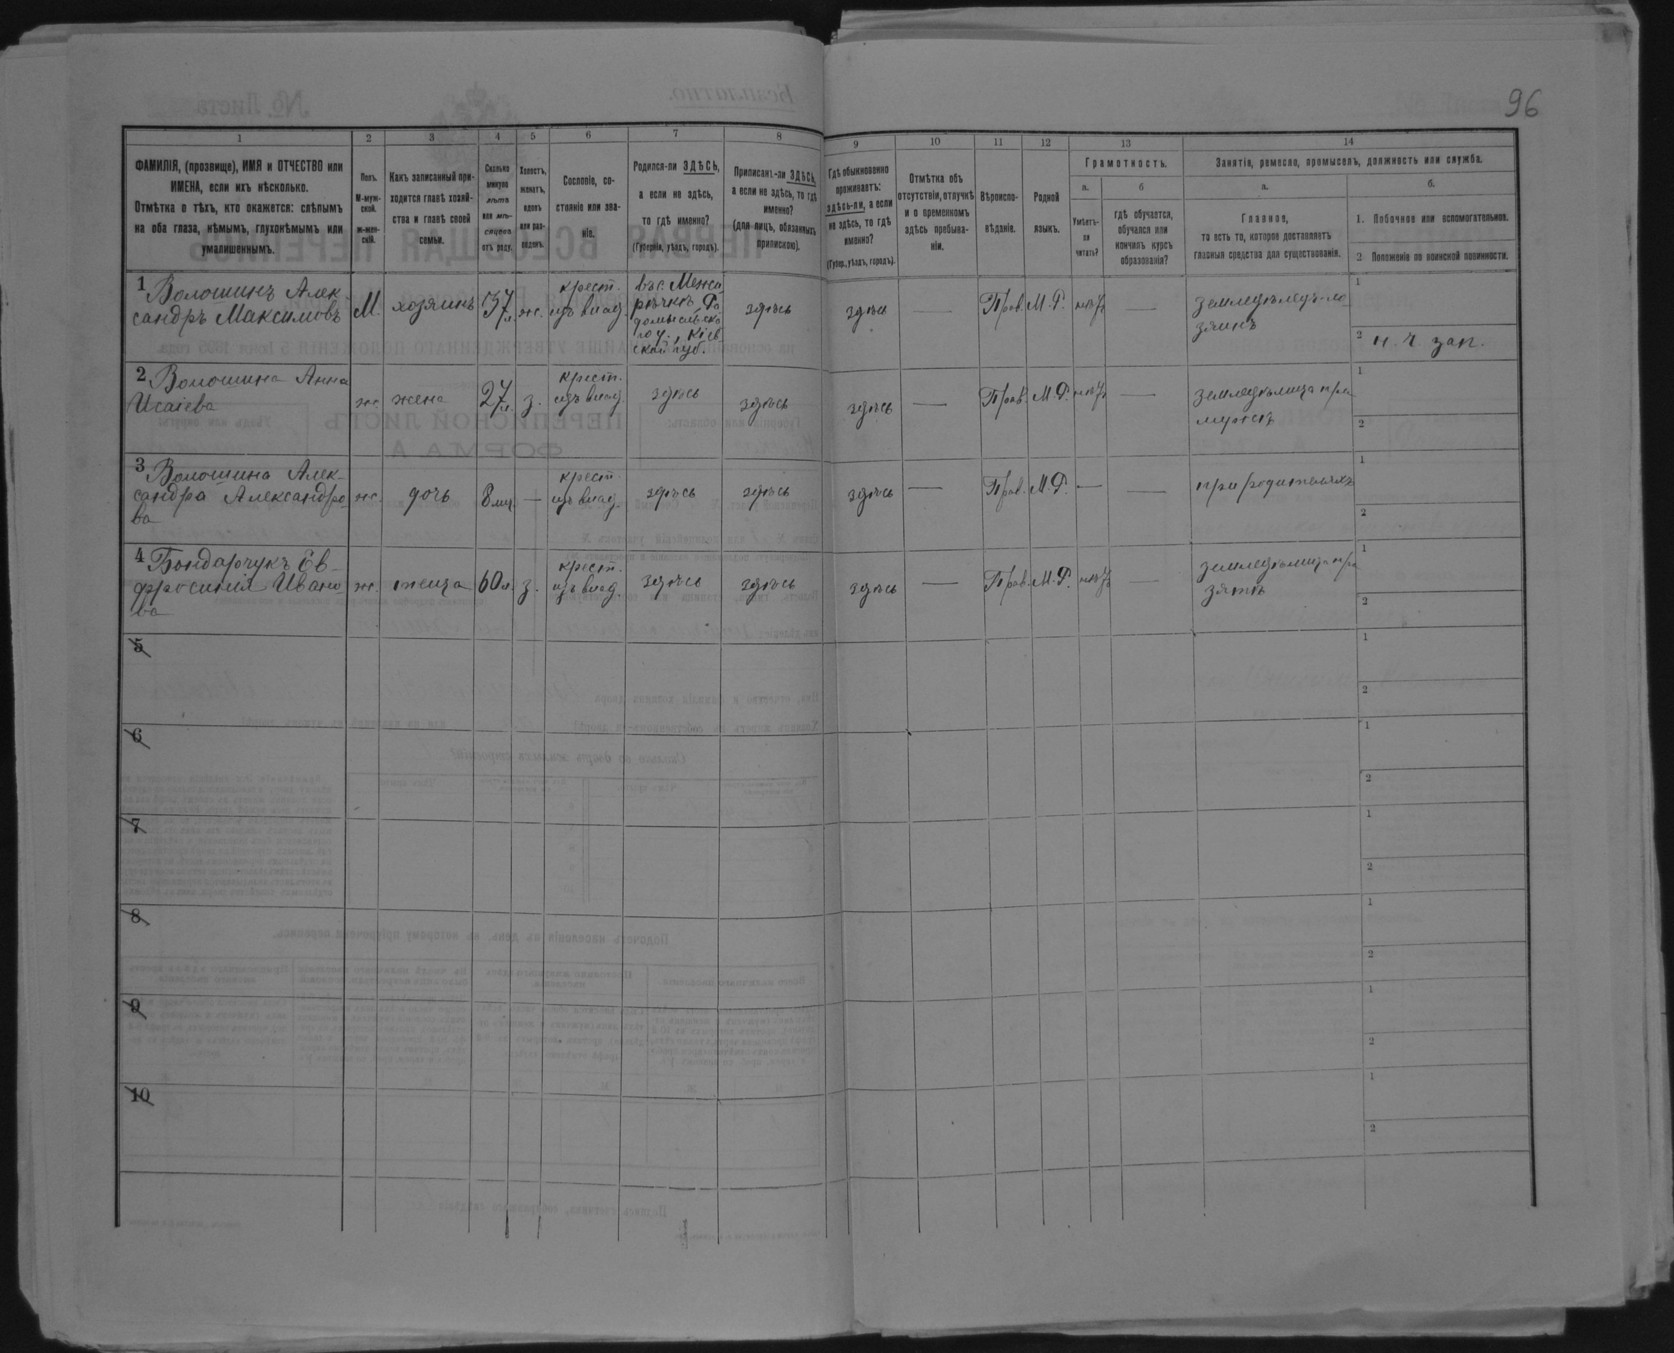 96
1
2
3
4
5
6
7
8
9
10
11
12
13
14
ФАМИЛІЯ, (прозвище), ИМЯ и ОТЧЕСТВО или
ИМЕНА, если ихъ нѣсколько.
Отмѣтка о тѣхъ, кто окажется: слѣпымъ
на оба глаза, нѣмымъ, глухонѣмымъ или
умалишеннымъ.
Полъ.
М-муж-
ской.
ж-жен-
скій.
Какъ записанный при-
ходится главѣ хозяй-
ства и главѣ своей
семьи.
Сколько
минуло
лѣтъ
или мѣ-
сяцевъ
отъ роду.
Холостъ,
женатъ,
вдовъ
или раз-
веденъ.
Сословіе, со-
стояніе или зва-
ніе.
Родился-ли ЗДѢСЬ,
а если не здѣсь,
то гдѣ именно?
(Губернія, уѣздъ, городъ).
Приписанъ-ли ЗДѢСЬ,
а если не здѣсь, то гдѣ
именно?
(для лицъ, обязанныхъ
припискою).
Гдѣ обыкновенно
проживаетъ:
здѣсь-ли, а если
не здѣсь, то гдѣ
именно?
(Губер., уѣздъ, городъ).
Отмѣтка объ
отсутствіи, отлучкѣ
и о временномъ
здѣсь пребыва-
ніи.
Вѣроиспо-
вѣданіе.
Родной
языкъ.
Грамотность.
а.
б
Умѣетъ-
ли
читать?
гдѣ обучается,
обучался или
кончилъ курсъ
образованія?
Занятіе, ремесло, промыселъ, должность или служба.
а.
б.
Главное,
то есть то, которое доставляетъ
главныя средства для существованія.
1. Побочное или вспомогательное.
2 Положеніе по воинской повинности.
1 Волошинъ Алек-
сандръ Максимовъ
М.
хозяинъ
37 л.
ж.
крест.
изъ влад.
въ с.
домысльско
го у., Кіев
ской губ.
здѣсь
здѣсь
—
Прав.
М.Р.
нѣтъ
—
1
2 н. ч. зап.
2 Волошина Анна
Исаіева
ж
жена
27 л.
з.
крест.
изъ влад.
здѣсь
здѣсь
здѣсь
—
Прав.
М.Р.
нѣтъ
—
земледѣлица при
мужѣ
1
2
3 Волошина Алек-
сандра Александро
ва
ж.
дочь
8 мц.
—
крест.
изъ влад.
здѣсь
здѣсь
здѣсь
—
Прав.
М.Р.
—
—
при родителяхъ
1
2
4 Бондарчукъ Ев-
фросинія Ивано
ва
ж.
теща
60 л.
з.
крест.
изъ влад.
здѣсь
здѣсь
здѣсь
—
Прав.
М.Р.
нѣтъ
—
земледѣлица при
зятѣ
1
2
5
1
2
6
1
2
7
1
2
8
1
2
9
1
2
10
1
2